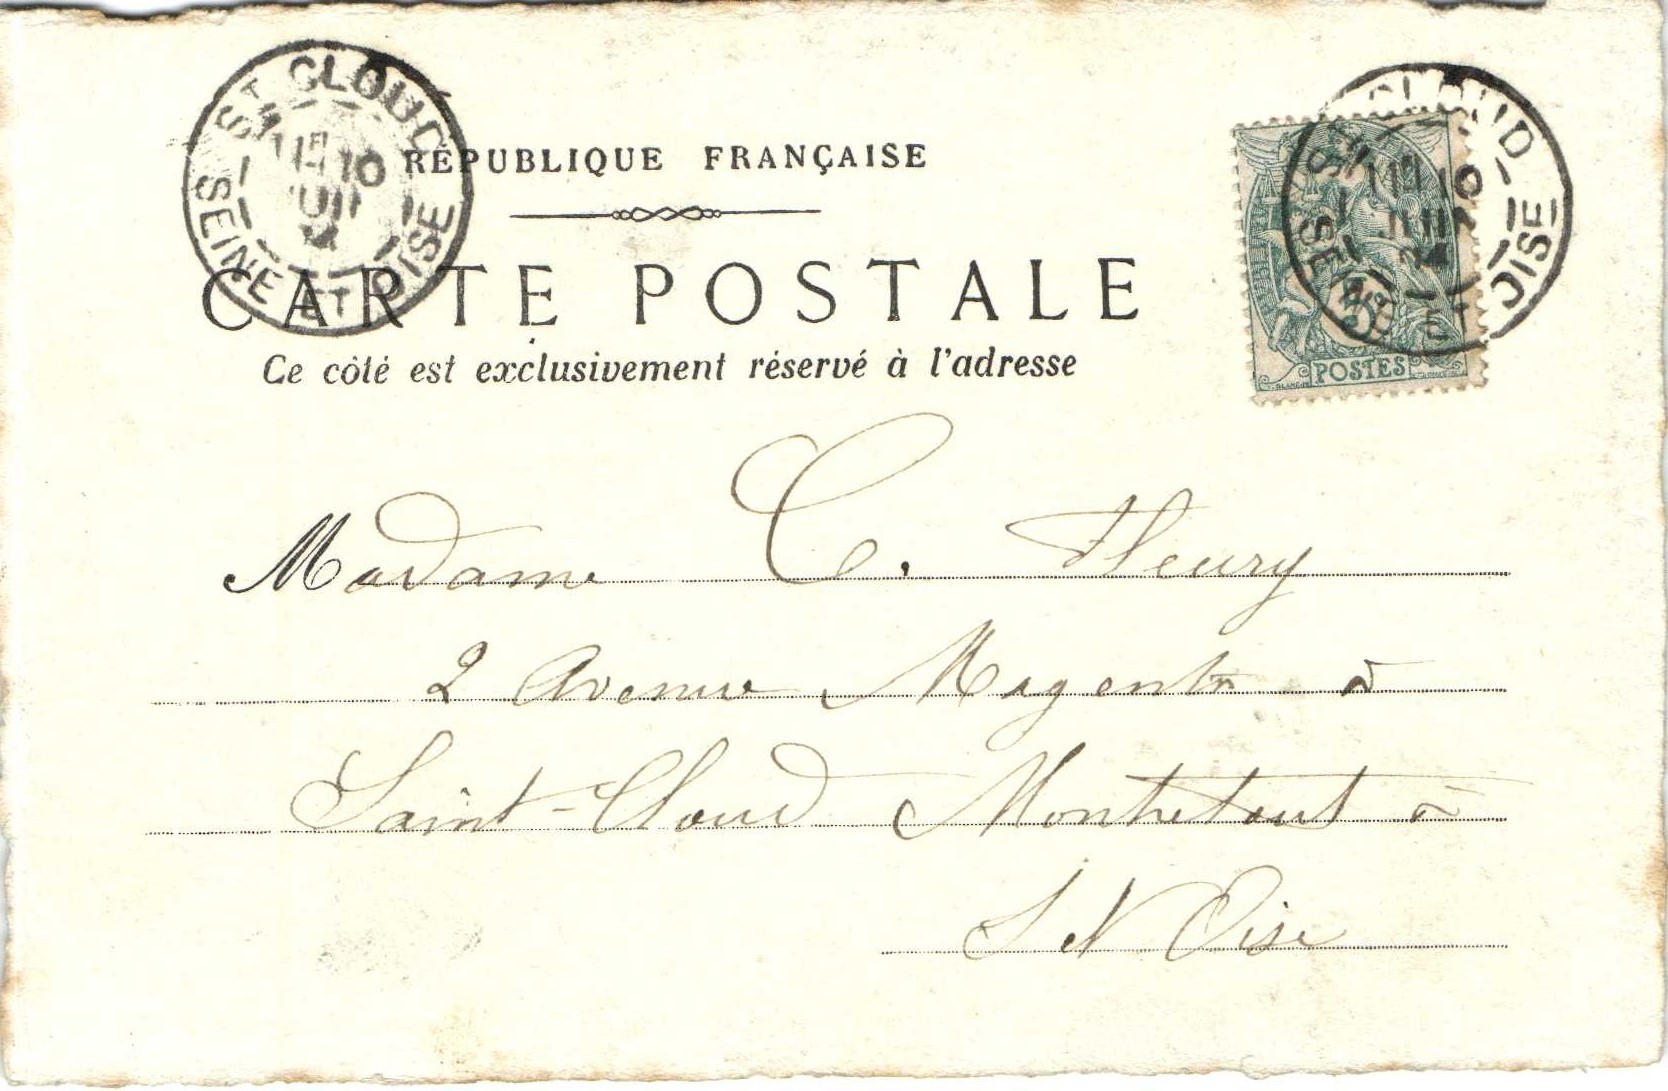 ST CLOUD
SEINE ET OISE
RÉPUBLIQUE FRANÇAISE
CARTE POSTALE
Ce côté est exclusivement réservé à l'adresse
POSTES
Madame C. Fleury
2 Avenue Magenta à
Saint-Cloud Montretout
S Oise